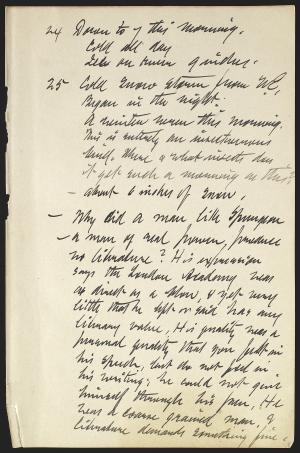 24 Down to 7 this morning.
Cold all day
25 Cold Snow Storm from
Began in the night.
A winter wren this morning.
This is entirely an insectivorous
bird, where & what insects does
it get such a morning as this?
- about 6 inches of snow.
- Why did a man like Spurgeon
- a man of real power, produce
no literature? His expression
says the London Academy was
as direct as a blow, & yet very
little that he left or said has any
literary value. His quality was a
personal quality that you felt in
his speech, but do not feel in
his writing; he could not give
himself through his pen. He
was a coarse grained man, &
literature demands something fine